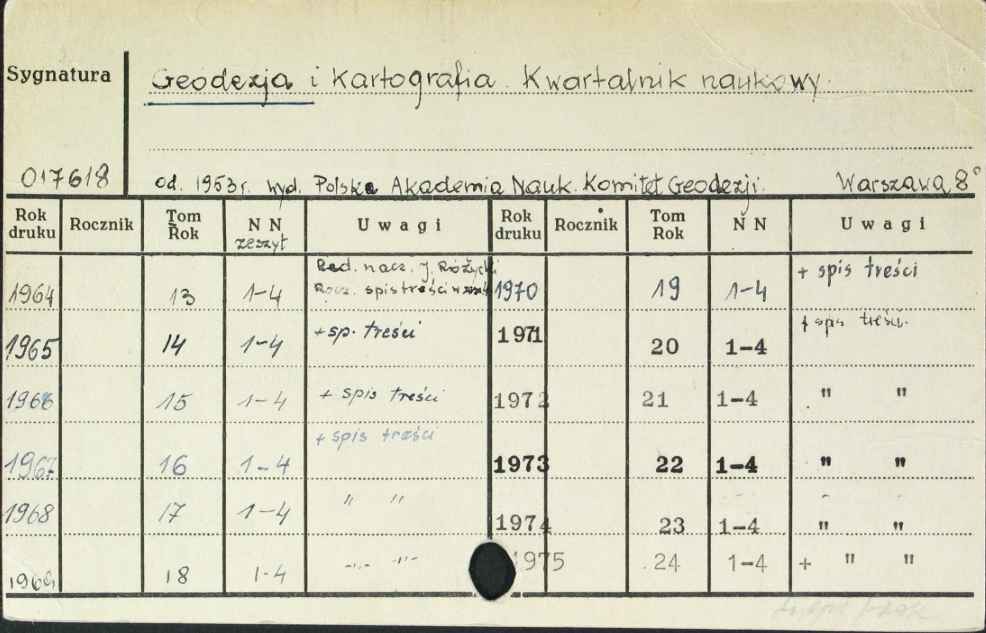 Sygnatura
Geodezja i Kartografia. Kwartalnik naukowy.
017618
od. 1953r. wyd. Polska Akademia Nauk. Komitet Geodezji. Warszawa, 8°
Rok druku Rocznik Tom Rok N N zeszyt Uwagi Rok druku Rocznik Tom Rok N N Uwagi
1964 13 1-4 Red. nacz. J. Różycki
Rocz. spis treści w 1970 19 1-4 + spis treści
1965 14 1-4 + sp. treści 1971 20 1-4 + spis treści.
1966 15 1-4 + spis treści 1972 21 1-4 " "
1967 16 1-4 + spis treści 1973 22 1-4 " "
1968 17 1-4 " " 1974 23 1-4 " "
1969 18 1-4 -"- -"- 1975 24 1-4 + " "